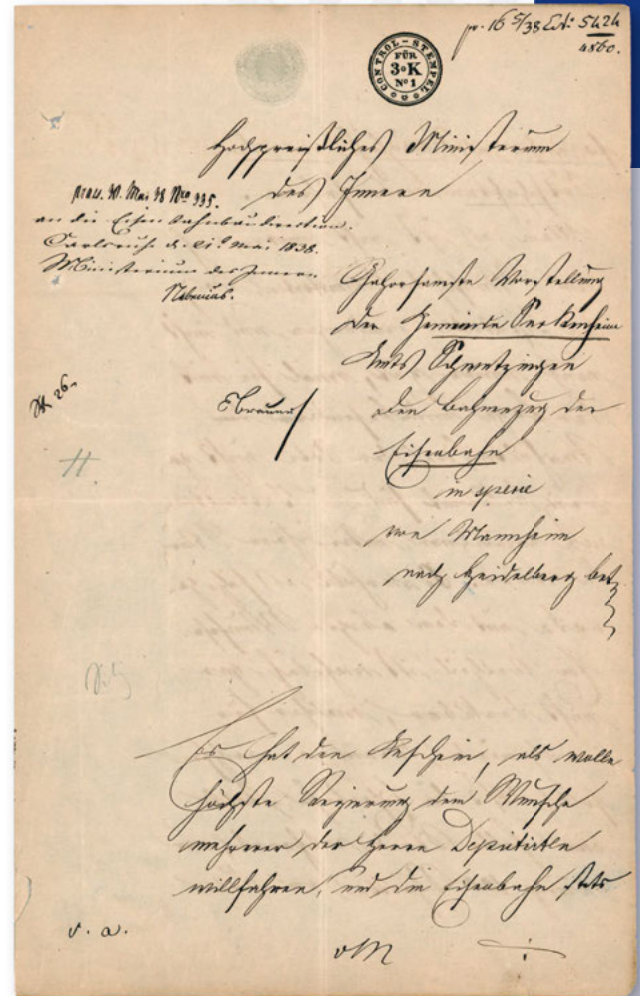 pr. 16 5/38 Ext: 5424
4860.
CONTROL-STEMPEL
FÜR
3•K
Nº 1
Hochpreißliches Ministerium
des Innern
praes. 30. Mai 38 Nro 335.
an die Eisenbahnbaudirection.
Carlsruhe d. 21t Mai 1838.
Ministerium des Innern.
Nebenius.
Gehorsamste Vorstellung
der Gemeinde Seckenheim
Amts Schwetzingen
den Bahnzug der
Eisenbahn
in specie
von Mannheim
nach Heidelberg bet
Es hat den Anschein, als wolle
höchste Regierung dem Wunsche
mehrerer der Herrn Deputirten
willfahren, und die Eisenbahn stets
v. a.